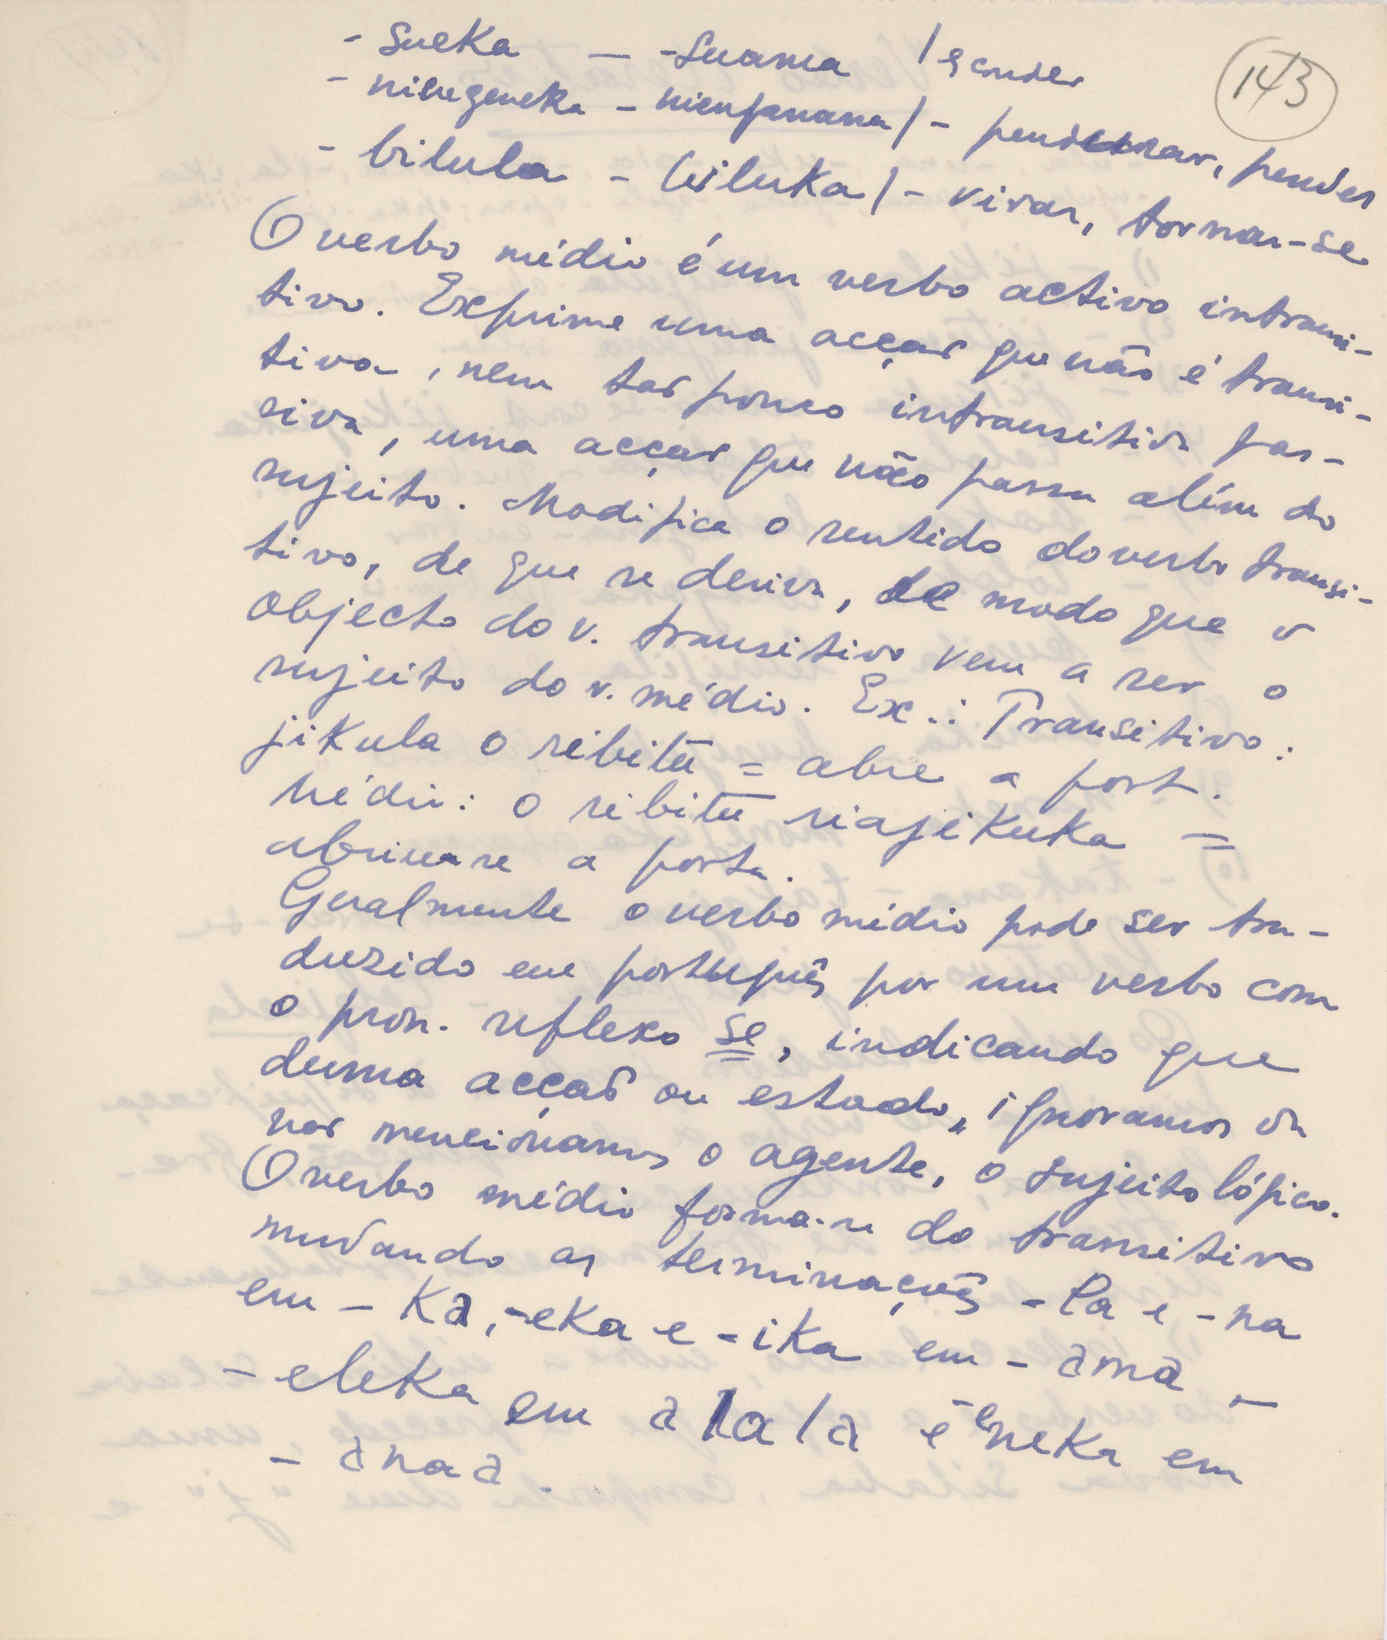 143
- sueka - -suama / sconder
- niengeneka - nienganana / - pendurar, pender
- bilula - biluka / - virar, tornar-se
O verbo médio é um verbo activo intransi-
tivo. Exprime uma acção que não é transi-
tiva, nem tão pouco intransitiva pas-
siva, uma acção que não passa além do
sujeito. Modifica o sentido do verbo transi-
tivo, de que se deriva, de modo que o
objecto do v. transitivo vem a ser o
sujeito do v. médio. Ex.: Transitivo:
jikula o ribitu = abre a port.
Médio: o ribitu riajikuka =
abriu-se a porta.
Geralmente o verbo médio pode ser tra-
duzido em português por um verbo com
o pron. reflexo se, indicando que
duma acção ou estado, ignoramos ou
não mencionamos o agente, o sujeito lógico.
O verbo médio forma-se do transitivo
mudando as terminações -la e -na
em - Ka, -eka e -ika em - ama -
- eleka em alala e eneka em
- anaa.